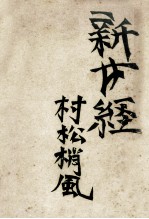 新女経
村松梢風